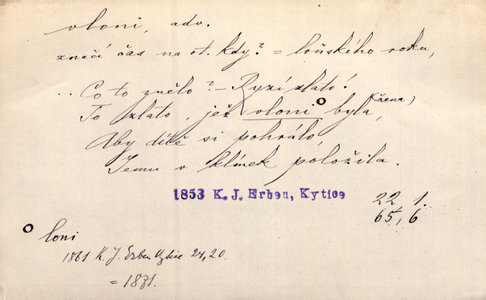 vloni, adv.
značí čas na ot. kdy? = loňského roku,
.. Co to znělo? – Ryzí zlato!
To zlato, jež vloni° byla, (žena)
Aby dítě si pohrálo,
Jemu v klínek položila.
1853 K. J. Erben, Kytice
22 1.
65, 6
° loni
1861 K. J. Erben Kytice 24, 20.
= 1871.